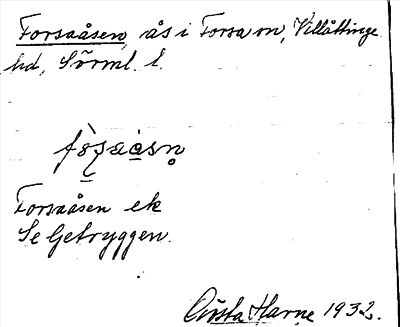 Forsaåsen, ås i Forsa sn, Villåttinge
hd, Sörml. l.
Forsaåsen ek
Se Getryggen.
Gösta Harne 1932.